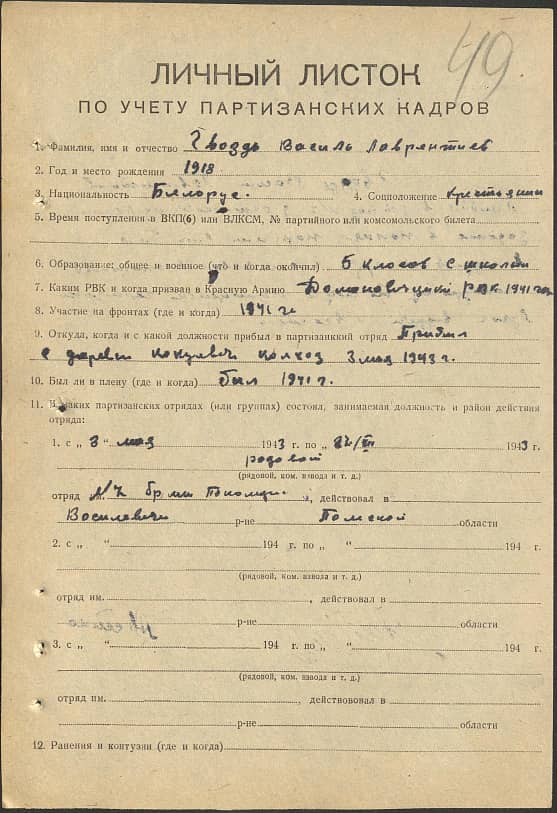 49
ЛИЧНЫЙ ЛИСТОК
ПО УЧЕТУ ПАРТИЗАНСКИХ КАДРОВ
1. Фамилия, имя и отчество Гвоздь Василь Лаврентиев
2. Год и место рождения 1918
3. Национальность Белорус. 4. Соцположение крестьянин
5. Время поступления в ВКП(б) или ВЛКСМ, № партийного или комсомольского билета
6. Образование: общее и военное (что и когда окончил) 5 класов
7. Каким РВК и когда призван в Красную Армию РВК 1941 год
8. Участие на фронтах (где и когда) 1941 г.
9. Откуда, когда и с какой должности прибыл в партизанкий отряд Прибыл
с деревни колхоз 3 мая 1943 г.
10. Был ли в плену (где и когда) был 1941 г.
11. В каких партизанских отрядах (или группах) состоял, занимаемая должность и район действия
отряда:
1. с „ 3 “ мая 1943 г. по „ 1943 г.
рядовой
(рядовой, ком. взвода и т. д.)
отряд , действовал в
Василевичи р-не области
2. с „ “ 194 г. по „ “ 194 г.
(рядовой, ком. взвода и т. д.)
отряд им. , действовал в
р-не области
3. с „ “ 194 г. по „ “ 194 г.
(рядовой, ком. взвода и т. д.)
отряд им. , действововал в
р-не области
12. Ранения и контузии (где и когда)